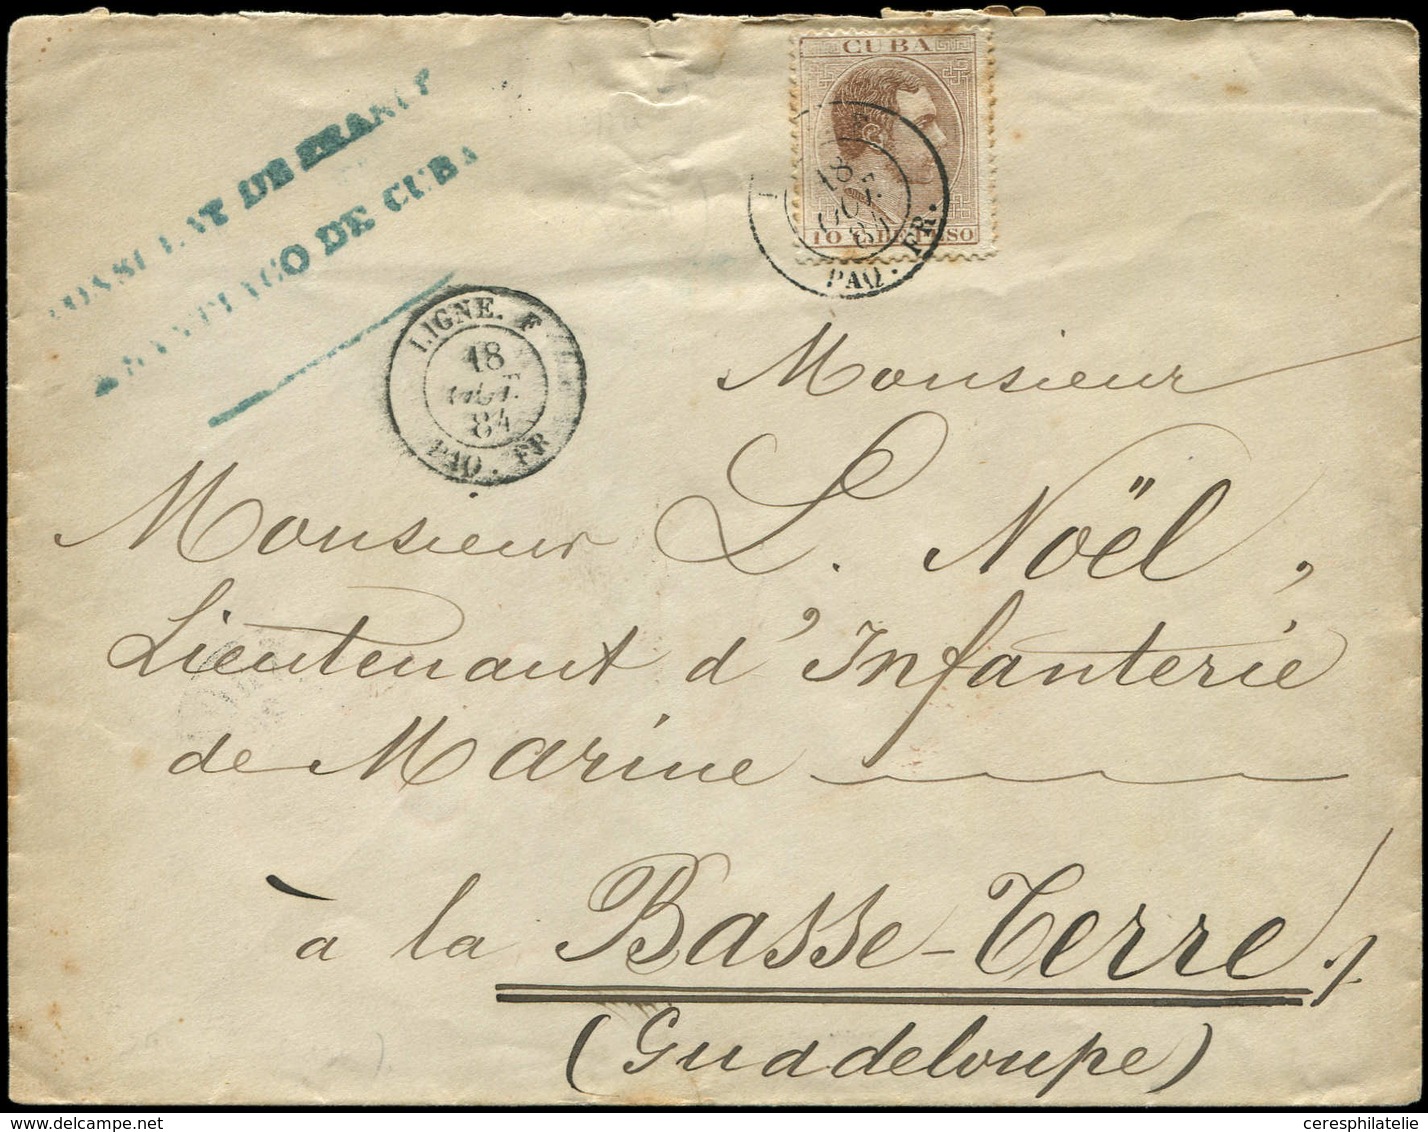 CONSULAT DE FRANCE
SANTIAGO DE CUBA
CUBA
18
84
PAQ. FR.
LIGNE. F
18
OCT.
84
PAQ. FR
Monsieur
Monsieur L. Noël,
Lieutenant d'Infanterie
de Marine
à la Basse-Terre
(Guadeloupe)
delcampe.net
ceresphilatelie